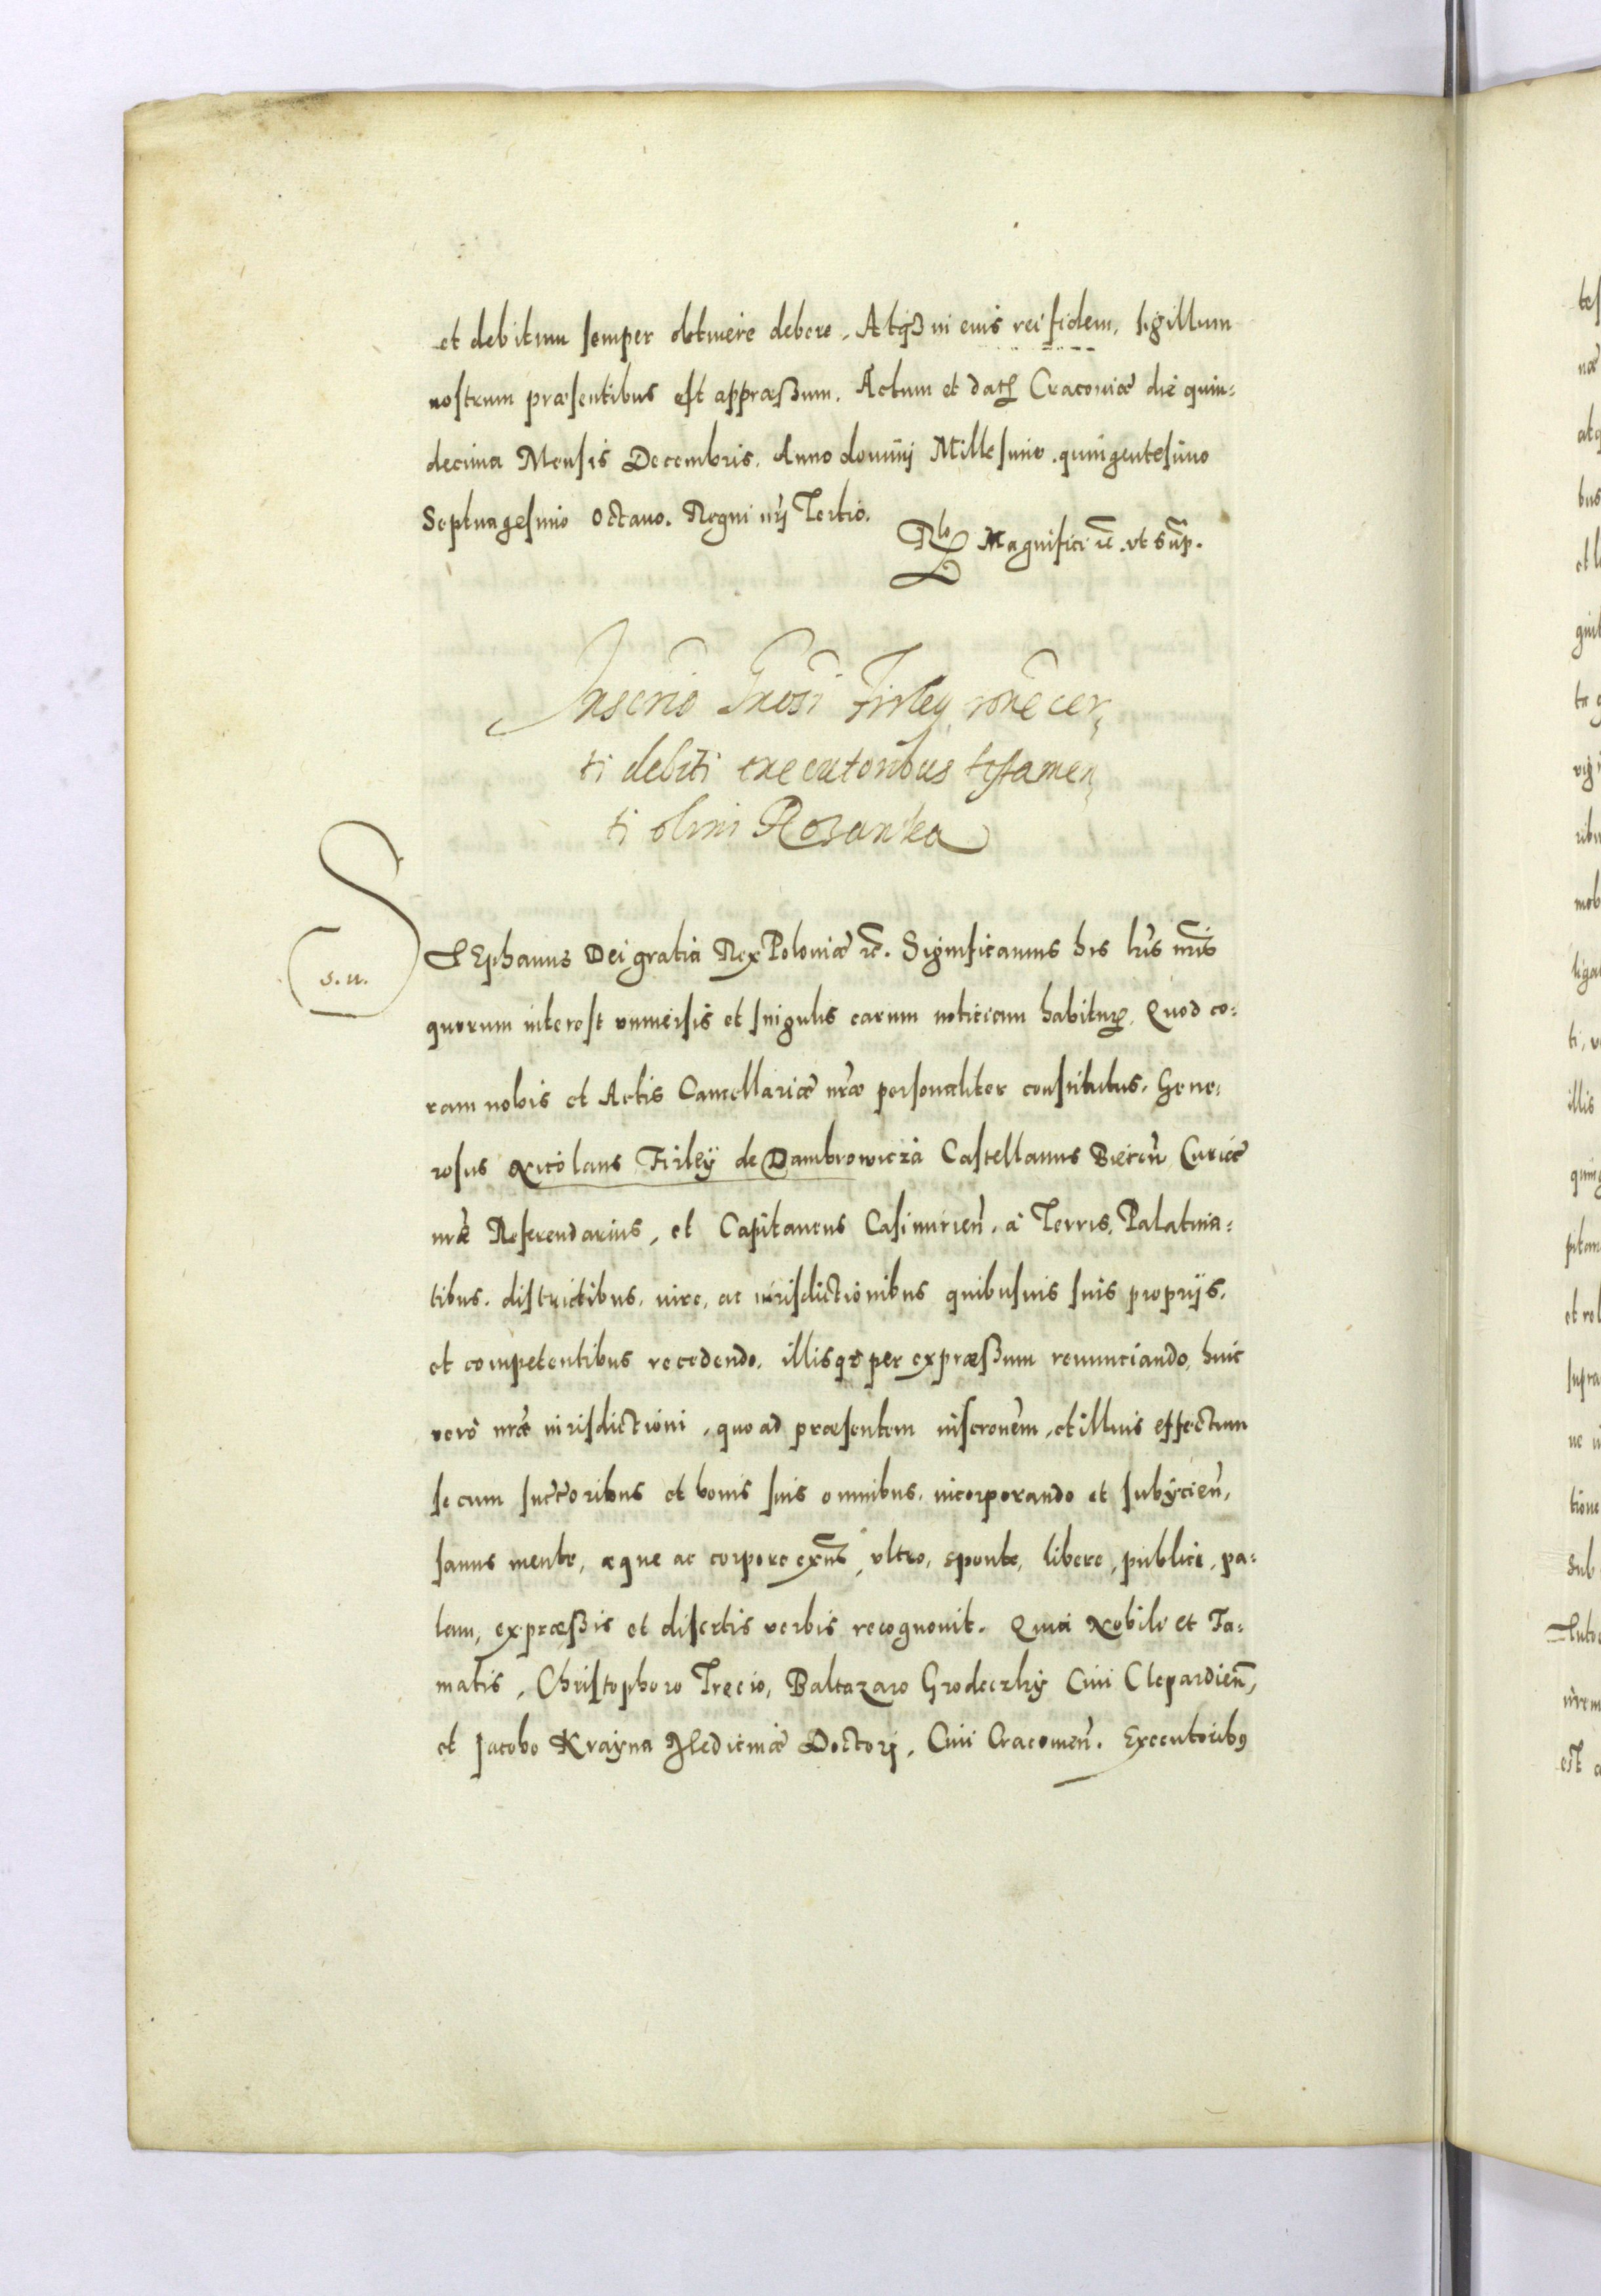 et debitum semper obtinere debere. Atq3 in eius rei fidem, sigillum
nostrum præsentibus est appræßum. Actum et dat. Cracoviæ die quin=
decima Mensis Decembris. Anno dominij Millesimo. quingentesimo
Septuagesimo Octavo. Regni nrj Tertio.
Rlo Magnifici rc̃. vt sup̃.
Inscrio Gnosi Firley rone cer,
ti debiti executoribus testamen,
ti olim Rozanka
S
s. n.
TEphanus Dei gratia Rex Poloniæ rc̃. Significamus his lris nris
quorum interest vniuersis et singulis earum noticiam habitur. Quod co=
ram nobis et Actis Cancellariæ nræ personaliter constitutus. Gene=
rosus Nicolaus Firleÿ de Dambrowicza Castellanus Biecen̄ Curiæ
nræ Referendarius, et Capitaneus Casimirien̄. à Terris, Palatina=
tibus. districtibus, iure, ac iurisdictionibus quibusuis suis proprijs,
et competentibus recedendo. illisqe per expræßum renunciando, huic
verò nræ iurisdictioni, quo ad præsentem inscronem, et illius effectum
se cum suctoribus et bonis suis omnibus. incorporando et subÿcien̄,
sanus mente, æque ac corpore exns, vltro, sponte, libere, publice, pa=
lam, expræßis et disertis verbis recognouit. Quia Nobili et Fa=
matis, Christophoro Trecio, Baltazaro Grodeczkÿ Ciui Clepardien̄,
et Jacobo Kraÿna Medicinæ Doctorj, Ciui Cracouien̄. Executorib9